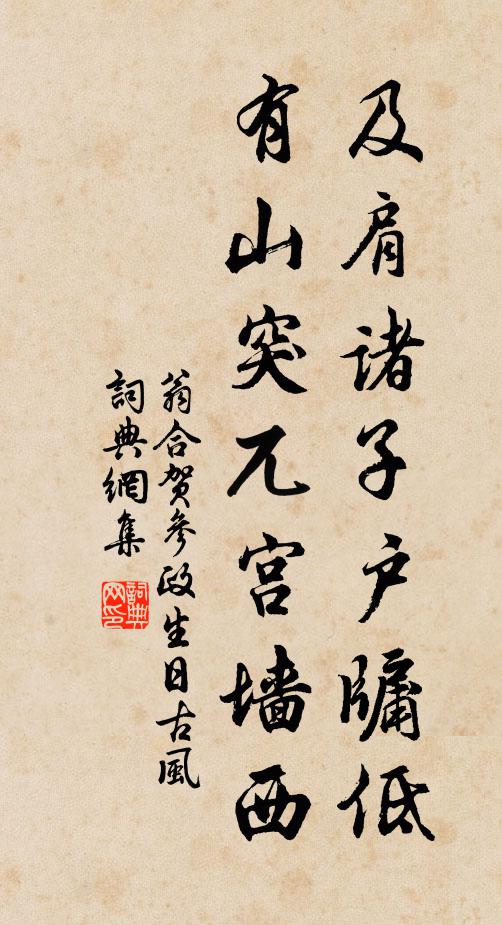 及肩诸子户牖低
有山突兀宫墙西
翁合贺參政生日古風
詞典網集
詞典网印